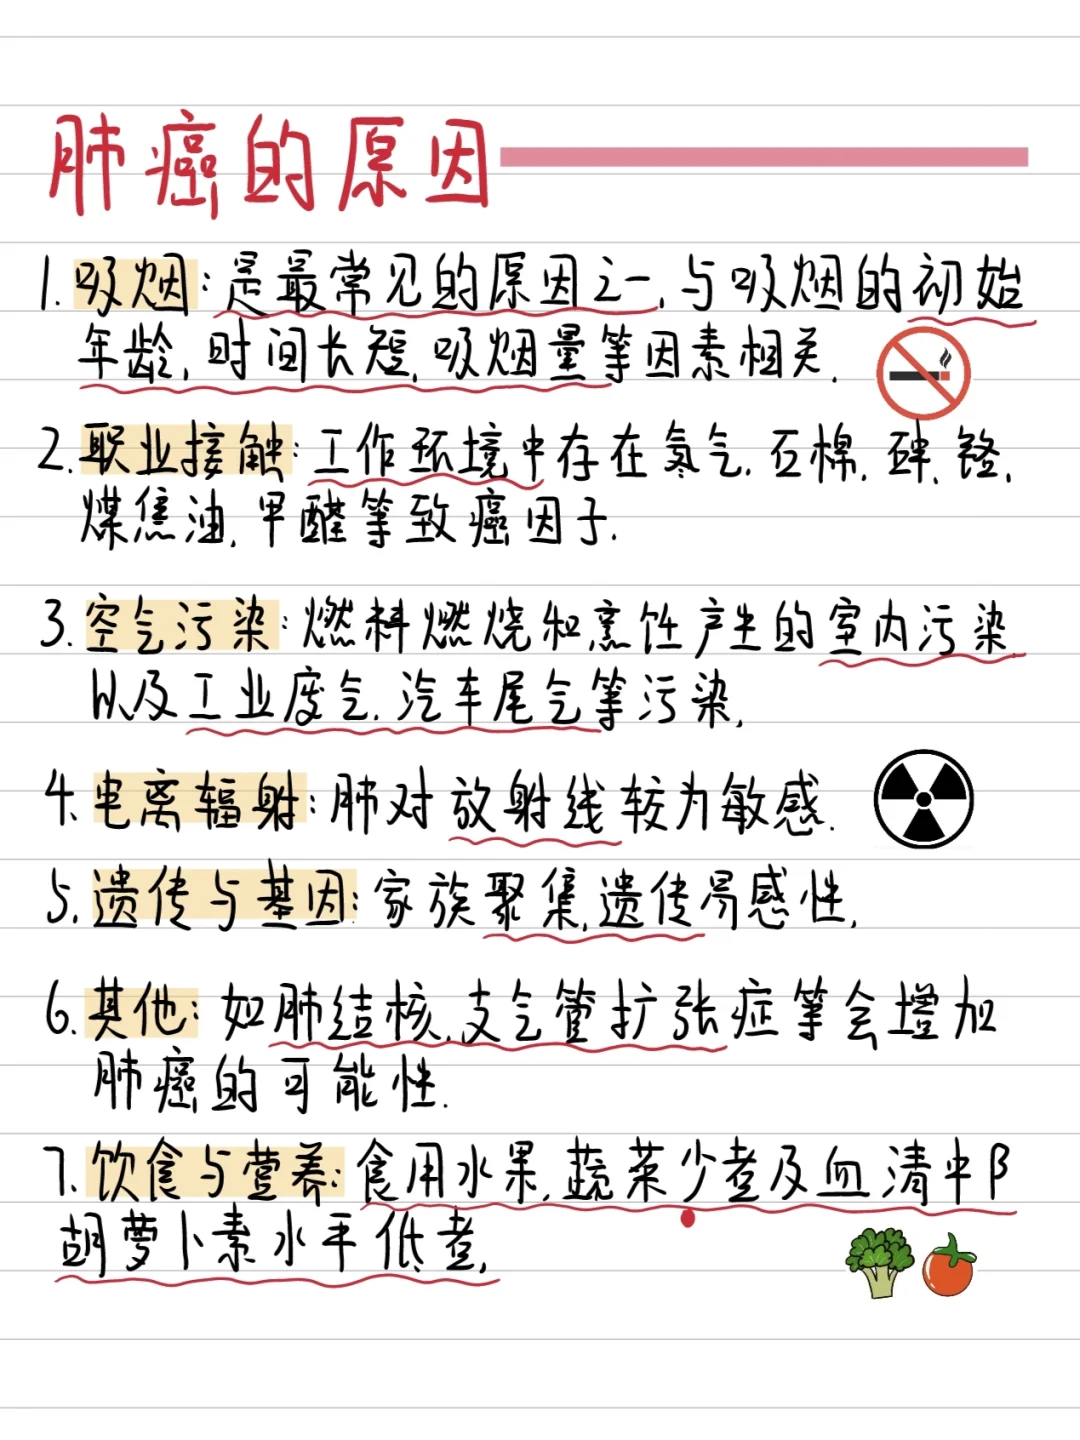 肺癌的原因
1.吸烟:是最常见的原因之一,与吸烟的初始
年龄,时间长短,吸烟量等因素相关.
2.职业接触:工作环境中存在氡气.石棉.砷.铬.
煤焦油.甲醛等致癌因子.
3.空气污染:燃料燃烧和烹饪产生的室内污染
以及工业废气.汽车尾气等污染.
4.电离辐射:肺对放射线较为敏感.
5.遗传与基因:家族聚集,遗传易感性.
6.其他:如肺结核.支气管扩张症等会增加
肺癌的可能性.
7.饮食与营养:食用水果.蔬菜少者及血清中β
胡萝卜素水平低者.